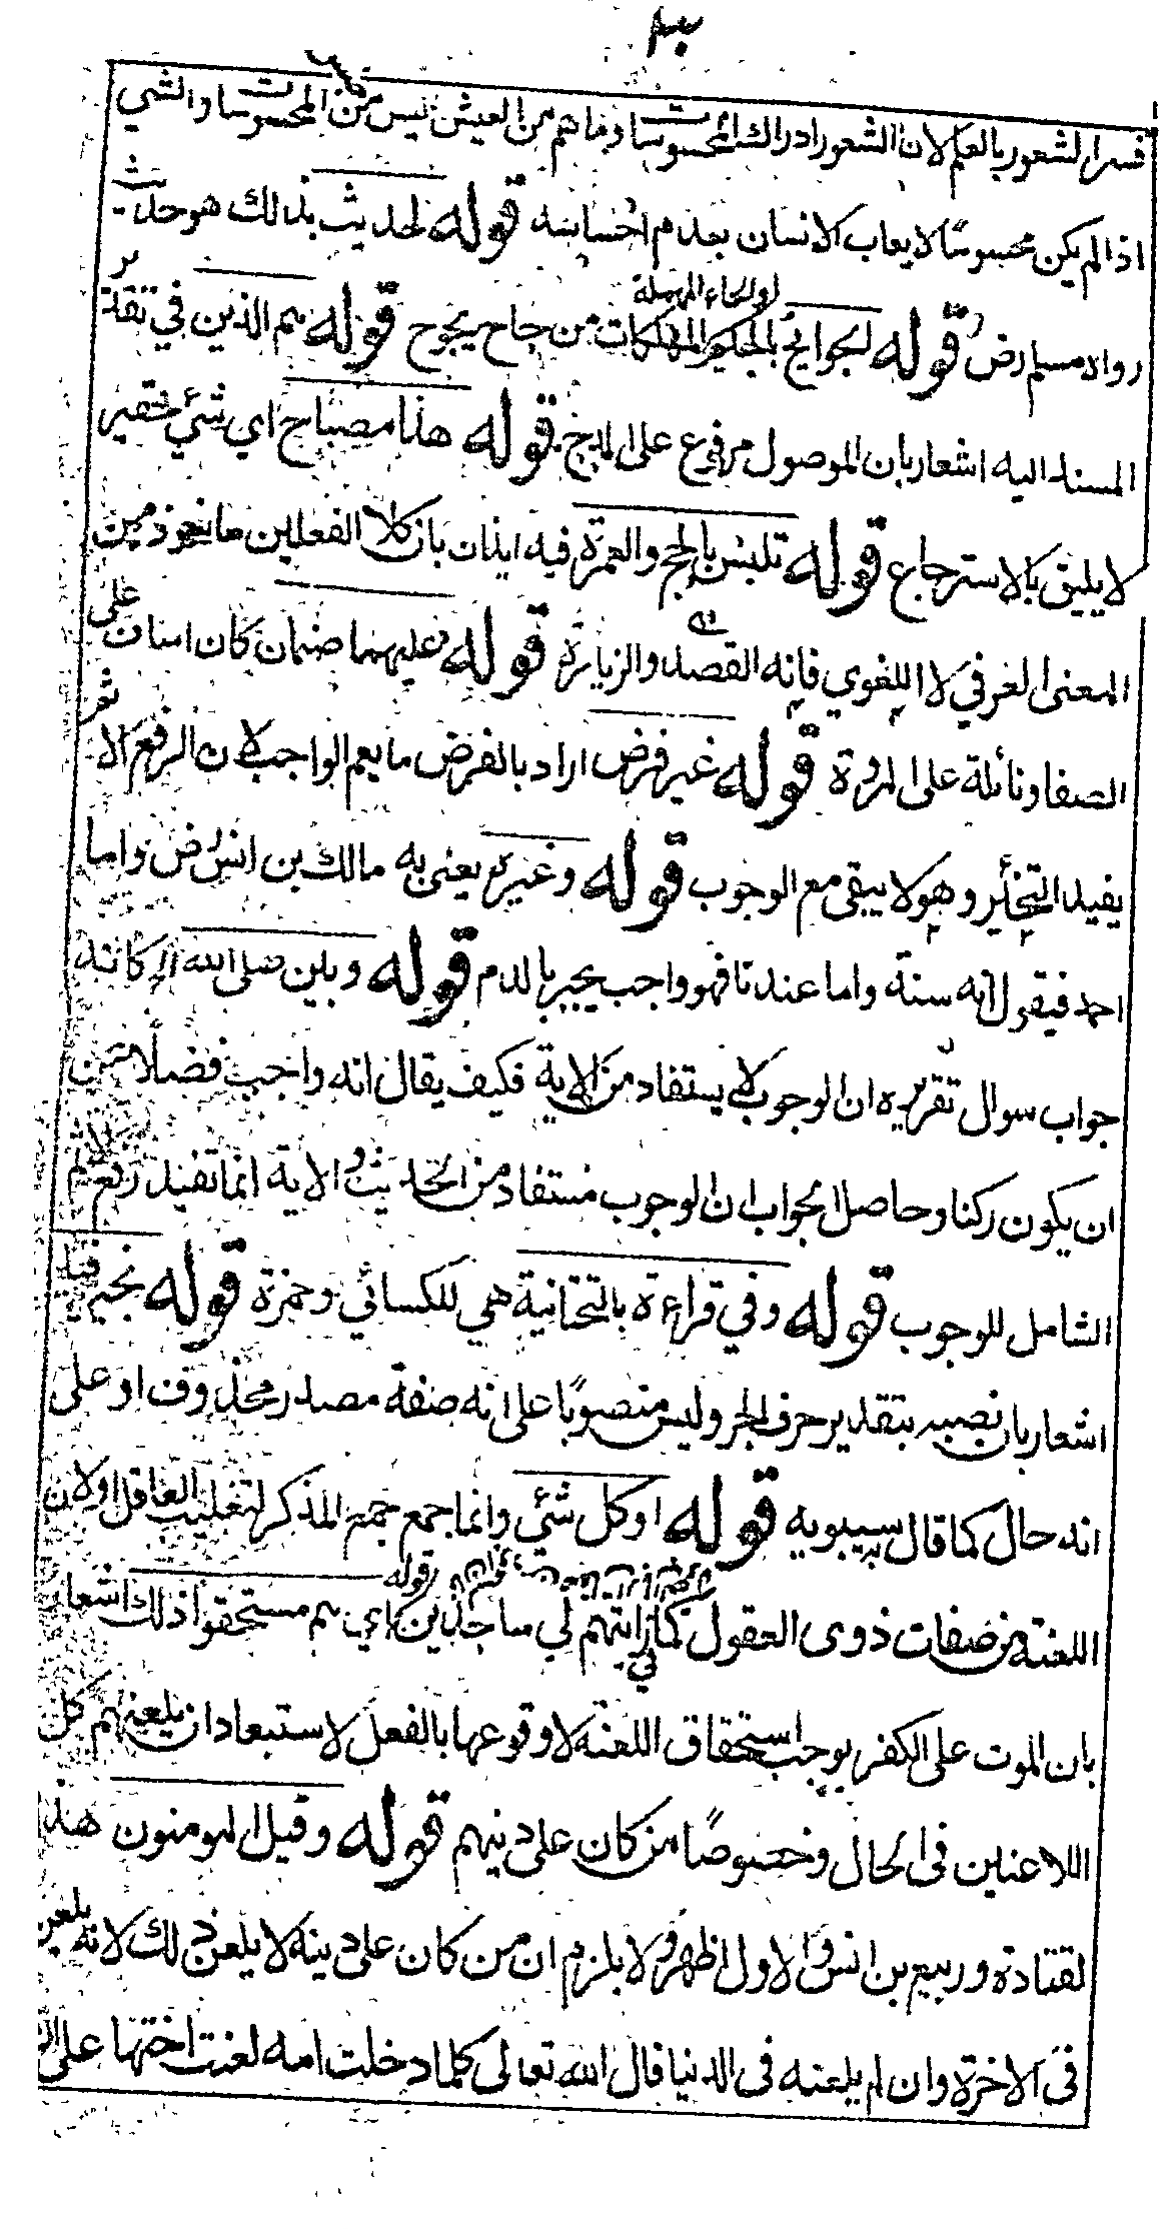 فسر الشعور بالعلم لان الشعور ادراك المحسوسات وما هم من العيش ليس من المحسوسات والشي
اذا لم يكن محسوسًا لا يعاب الانسان بعدم احساسه قوله لحديث بذلك هو حديث
او الحاء المهملة
رواه مسلم رض قوله الجوائح بالجيم المهلكات من جاح يجوح قوله هم الذين في تقدير
المسند اليه اشعار بان الموصول مرفوع على المدح قوله هذا مصباح اي شئ حقير
لا يليق بالاسترجاع قوله تلبس بالحج والعمرة فيه ايذان بان كلا الفعلين ماخوذ من
المعنى العرفي لا اللغوي فانه القصد والزيارة قوله وعليهما صنمان كان اساف على
الصفا ونائلة على المروة قوله غير فرض اراد بالفرض ما يعم الواجب لان الرفع الاثم
يفيد التخيير وهو لا يبقى مع الوجوب قوله وغيره يعنى به مالك بن انس رض واما
احمد فيقول انه سنة واما عندنا فهو واجب يجبر بالدم قوله وبين صلى الله الخ كانه
جواب سوال تقريره ان الوجوب لا يستفاد من الاية فكيف يقال انه واجب فضلا من
ان يكون ركنا وحاصل الجواب ان الوجوب مستفاد من الحديث والاية انما تفيد رفع الاثم
الشامل للوجوب قوله وفي قراءة بالتحتانية هي للكسائي وحمزة قوله بخير فيه
اشعار بان نصبه بتقدير حرف الجر وليس منصوبًا على انه صفة مصدر محذوف او على
انه حال كما قال سيبويه قوله او كل شئي وانما جمع جمع المذكر لتغليب العاقل او لان
اللعنة من صفات ذوى العقول كما في رايتهم لي ساجدين قوله اي هم مستحقوا ذلك اشعار
بان الموت على الكفر يوجب استحقاق اللعنة لا وقوعها بالفعل لاستبعاد ان يلعنهم كل
اللاعنين فى الحال وخصوصًا من كان على دينهم قوله وقيل المومنون هذا
لقتادة وربيع بن انس والاول اظهر ولا يلزم ان من كان على دينه لا يلعن ذلك لانه يلعن
فى الاخرة وان لم يلعنه فى الدنيا قال الله تعالى كلما دخلت امه لعنت اختها على